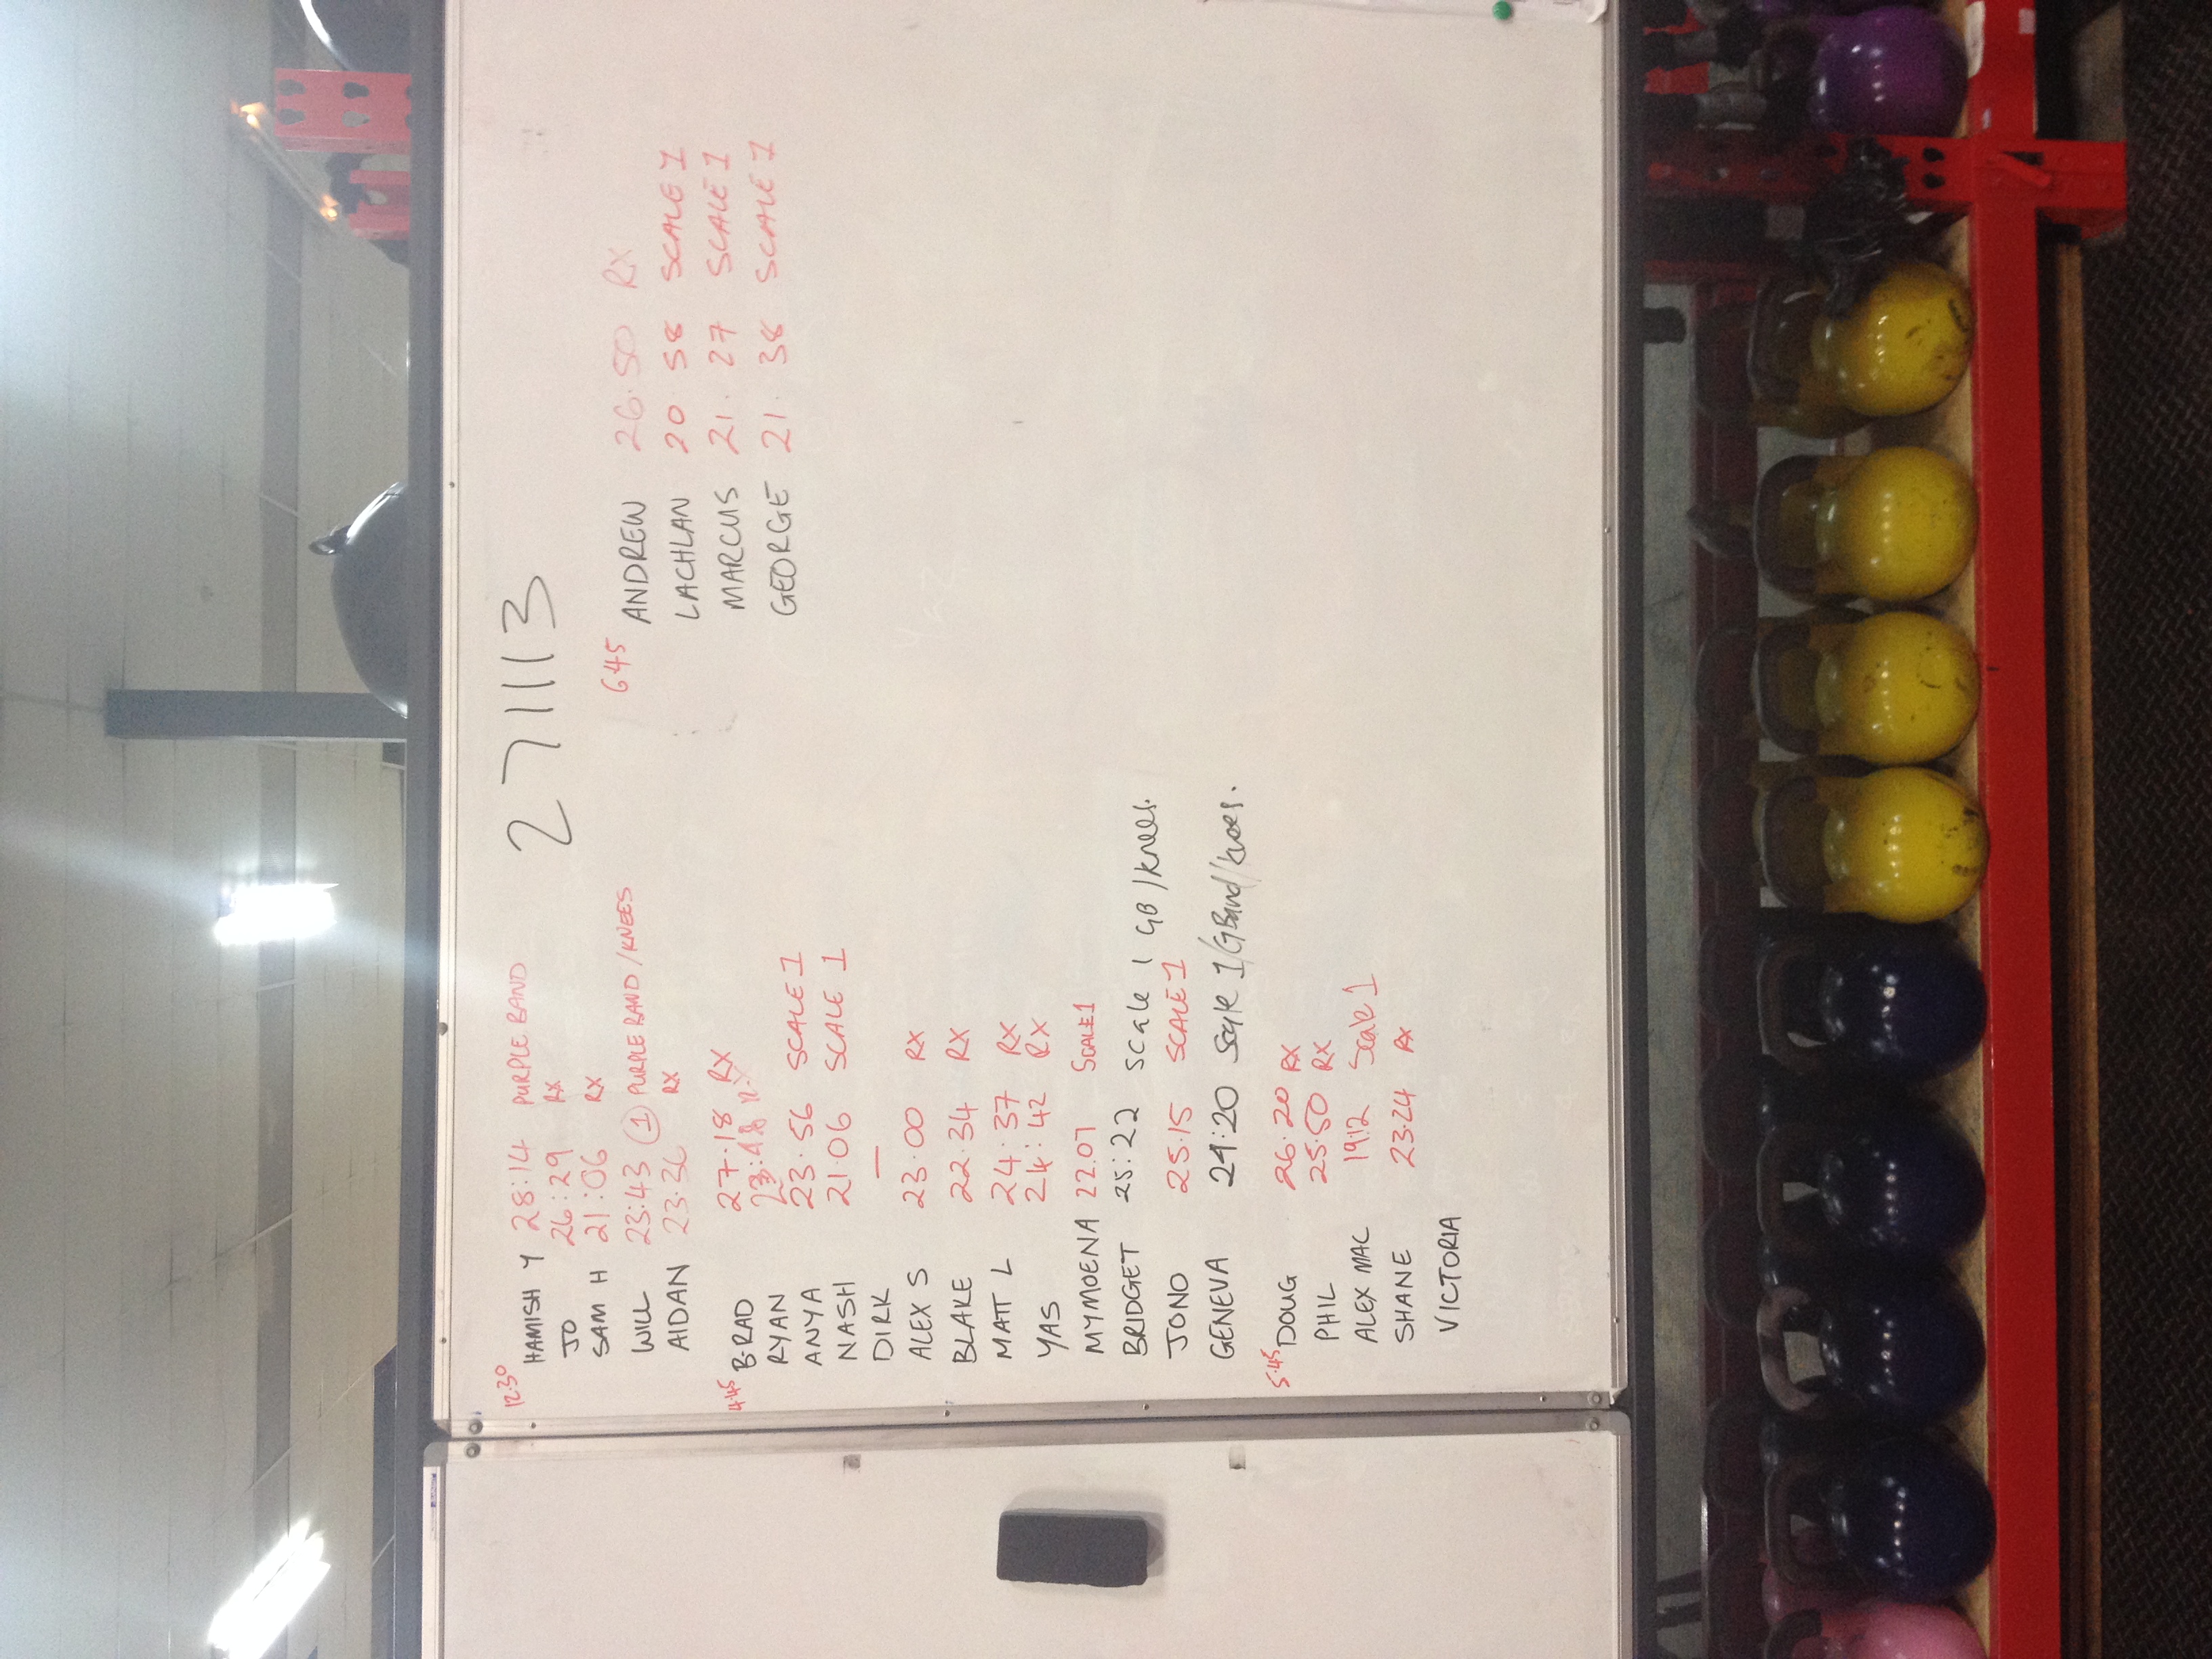 27 11 13
12:30
HAMISH Y 28:14 PURPLE BAND
JO 26:29 RX
SAM H 21:06 RX
WILL 23:43 1 PURPLE BAND/KNEES
AIDAN 23:36 RX
4:45
B-RAD 27:18 RX
RYAN RX
ANYA 23:56 SCALE 1
NASH 21:06 SCALE 1
DIRK —
ALEX S 23:00 RX
BLAKE 22:34 RX
MATT L 24:37 RX
YAS 24:42 RX
MYMOENA 22.07 SCALE 1
BRIDGET 25:22 Scale 1 GB/knees.
JONO 25:15 SCALE 1
GENEVA 29:20 Scale 1/GBand/knees.
5:45
DOUG 26:20 RX
PHIL 25:50 RX
ALEX MAC 19:12 Scale 1
SHANE 23:24 RX
VICTORIA
6:45
ANDREW 26:50 RX
LACHLAN 20 58 SCALE 1
MARCUS 21. 27 SCALE 1
GEORGE 21. 38 SCALE 1